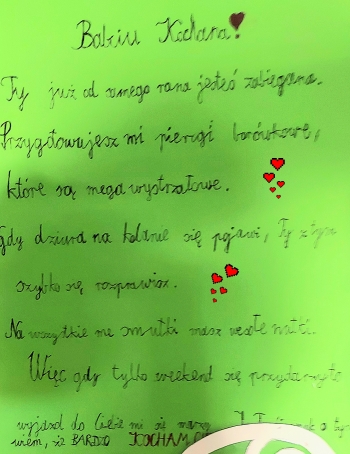 Babciu Kochana!
Ty już od samego rana jesteś zabiegana.
Przygotowujesz mi pierogi borówkowe,
które są mega wystrzałowe.
gdy dziura na kolanie się pojawi, Ty z tym
szybko się rozprawisz.
Na wszystkie me smutki masz wesołe nutki.
Więc gdy tylko weekend się przydarzy to
wyjazd do Ciebie mi się marzy.
wiem, iż BARDZO KOCHAM